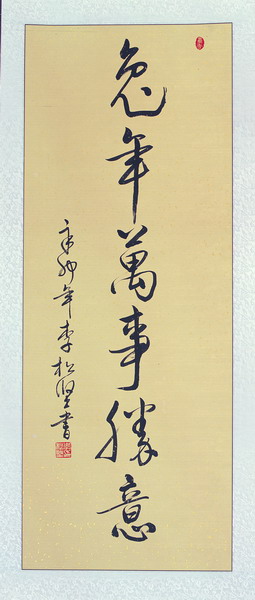 兔年萬事勝意
辛卯年李松坚書